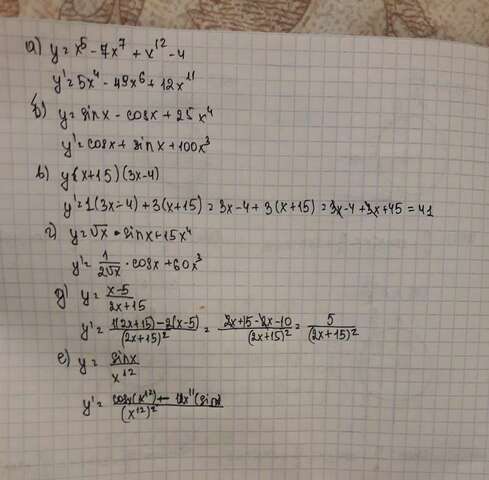 а) y = x⁵ - 7x⁷ + x¹² - 4
y' = 5x⁴ - 49x⁶ + 12x¹¹
б) y = sinx - cosx + 25x⁴
y' = cosx + sinx + 100x³
в) y = (x+15)(3x-4)
y' = 1(3x-4) + 3(x+15) = 3x-4 + 3(x+15) = 3x-4 + 3x+45 = 41
г) y = √x · sinx + 15x⁴
y' = 1/(2√x) · cosx + 60x³
д) y = (x-5)/(2x+15)
y' = (1(2x+15) - 2(x-5))/(2x+15)² = (2x+15-2x-10)/(2x+15)² = 5/(2x+15)²
е) y = sinx/x¹²
y' = (cosx(x¹²) - 12x¹¹(sinx)/(x¹²)²